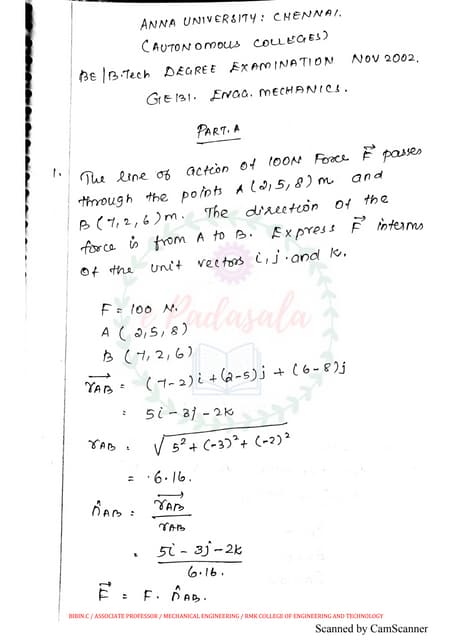 ANNA UNIVERSITY: CHENNAI.
(AUTONOMOUS COLLEGES)
BE/B.Tech DEGREE EXAMINATION NOV 2002.
GE131. ENGG. MECHANICS.
PART.A
1. The line of action of 100N Force F passes
through the points A(2,5,8)m and
B(7,2,6)m. The direction of the
force is from A to B. Express F interms
of the unit vectors i, j. and k.
F = 100 N.
A (2,5,8)
B (7,2,6)
rAB = (7-2)i + (2-5)j + (6-8)j
= 5i - 3j - 2k
rAB = √5²+(-3)²+(-2)²
= 6.16.
n̂AB = rAB
rAB
= 5i - 3j - 2k
6.16.
F = F. n̂AB.
e Padasala
BIBIN.C / ASSOCIATE PROFESSOR / MECHANICAL ENGINEERING / RMK COLLEGE OF ENGINEERING AND TECHNOLOGY
Scanned by CamScanner